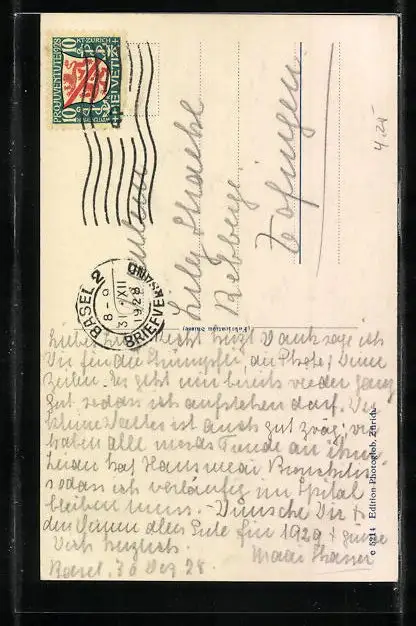 PRO JUVENTUTE 1928
KT. ZÜRICH
10 10
HELVETIA
BASEL 2
8-9
31.XII
1928
BRIEFVERSAND
Fräulein
Lilly
Rebberge
Zofingen.
4.25
(Fabrication Suisse)
e 5214 Edition Photoglob, Zürich
Liebe Recht herzl. Dank sage ich
Dir für die Strümpfe, die Photo, Deine
Zeilen. Es geht mir bereits wieder ganz
gut, sodass ich aufstehen darf. Der
Kleine ist auch gut zwäg; wir
haben alle Freude an ihm.
Leider hat Hansmeari Bronchitis
sodass ich vorläufig im Spital
bleiben muss. - Wünsche Dir &
den Deinen alles Gute für 1929 & grüsse
Dich herzlich.
Basel, 30 Dez 28.